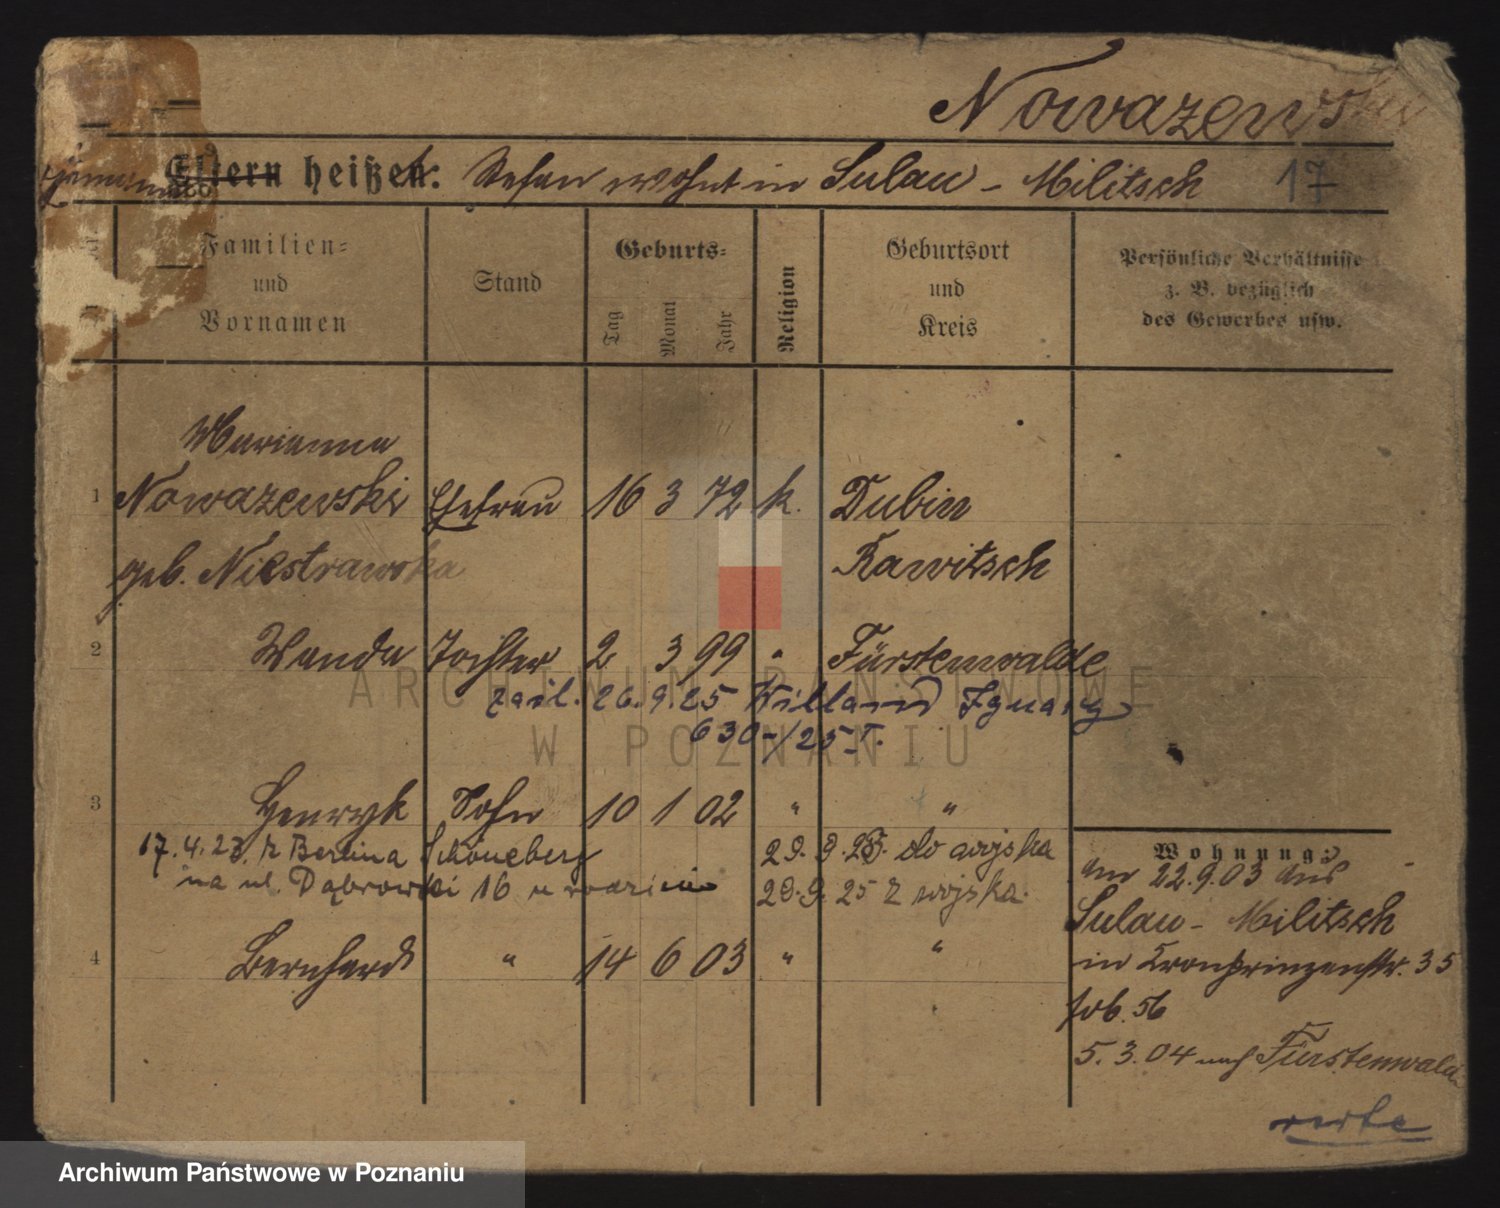 Nowazewski
Eltern heißen: Stefan wohnt in Sulau - Militsch 17
Familien- und Vornamen
Stand
Geburts-
Tag
Monat
Jahr
Religion
Geburtsort und Kreis
Persönliche Verhältnisse z. B. bezüglich des Gewerbes usw.
Marianna
1 Nowazewski Ehefrau 16 3 72 k. Dubin
geb. Niestrawska Rawitsch
2 Wanda Tochter 2 3 99 " Fürstenwalde
zaśl. 26.9.25 Willand Ignacy
630/25 T.
3 Henryk Sohn 10 1 02 " "
17.4.23. z Berlina Schöneberg
na ul. Dąbrowski 16 u rodziców
29.9.25 do wojska
29.9.25 z wojska.
4 Bernhard " 14 6 03 " "
Wohnung:
am 22.9.03 aus
Sulau - Militsch
in Kronprinzenstr. 35
5.3.04 nach Fürstenwalde
verte
ARCHIWUM PAŃSTWOWE
W POZNANIU
Archiwum Państwowe w Poznaniu